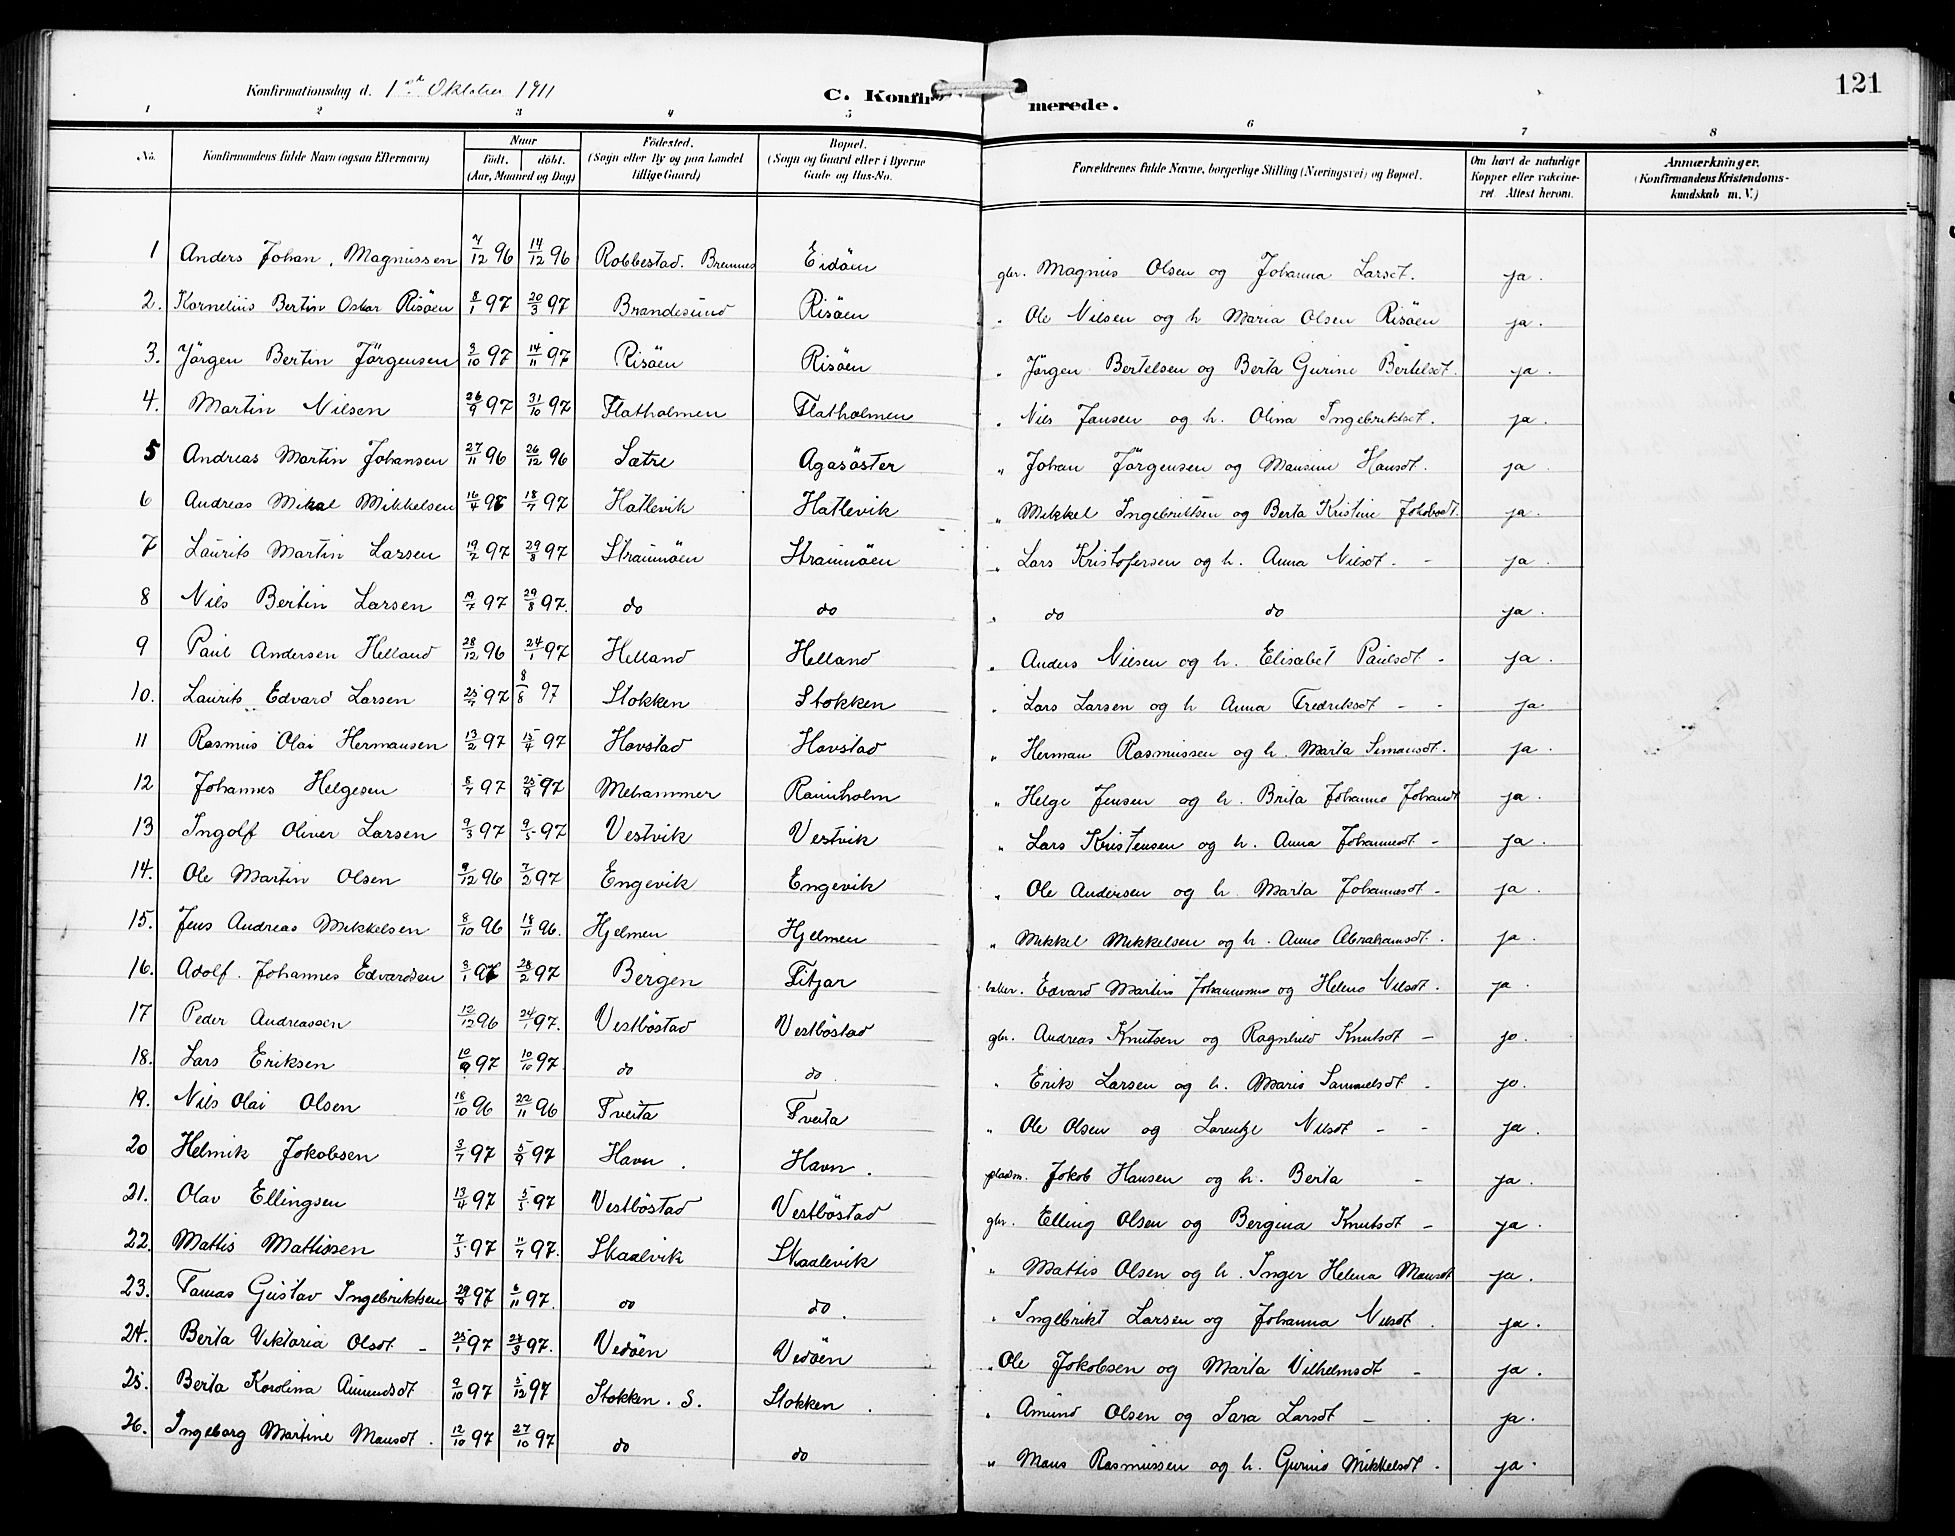 Konfirmationsdag d. 1ste Oktober 1911
C. Konfirmerede.
121
1 2 3 4 5 6 7 8
No. Konfirmandens fulde Navn (ogsaa Efternavn) Naar født. døbt. (Aar, Maaned og Dag) Fødested. (Sogn eller By og paa Landet tillige Gaard) Bopæl. (Sogn og Gaard eller i Byerne Gade og Hus-No. Forældrenes fulde Navne, borgerlige Stilling (Næringsvei) og Bopæl. Om havt de naturlige Kopper eller vakcineret. Attest herom. Anmærkninger. (Konfirmandens Kristendomskundskab m. V.)
1 Anders Johan Magnussen 7/12 96 14/12 96 Robbestad. Bremnes Eidöen gbr. Magnus Olsen og Johanna Larsdt. ja.
2. Kornelius Bertin Oskar Risöen 8/1 97 20/3 97 Brandesund Risöen " Ole Nilsen og h Maria Olsen Risöen ja.
3. Jörgen Bertin Jörgensen 3/10 97 14/11 97 Risöen Risöen " Jörgen Bertelsen og Berta Gurine Bertelsdt. ja.
4. Martin Nilsen 26/9 97 31/10 97 Flatholmen Flatholmen " Nils Jansen og h. Olina Ingebriktsdt. ja.
5 Andreas Martin Johansen 27/11 96 26/12 96 Sætre Agasöster " Johan Jörgensen og Mansine Hansdt. ja
6 Andreas Mikal Mikkelsen 16/4 97 18/7 97 Hatlevik Hatlevik " Mikkel Ingebriktsen og Berta Kristine Jakobsdt. ja.
7 Laurits Martin Larsen 19/7 97 29/8 97 Straumöen Straumöen " Lars Kristofersen og h. Anna Nilsdt. - ja.
8 Nils Bertin Larsen 19/7 97 29/8 97. do do " do do ja.
9 Paul Andersen Helland 28/12 96 24/1 97 Helland Helland " Anders Nilsen og h. Elisabet Paulsdt - ja.
10. Laurits Edvard Larsen 25/7 97 8/8 97 Stokken Stokken " Lars Larsen og h Anna Fredriksdt - - ja.
11 Rasmus Olai Hermansen 13/2 97 15/4 97 Havstad Havstad " Herman Rasmussen og h. Marta Simonsdt. ja.
12 Johannes Helgesen 8/7 97 25/9 97 Mehammer Raunholm " Helge Jensen og h. Brita Johanna Johansdt ja.
13 Ingolf Oliver Larsen 9/3 97 9/5 97 Vestvik Vestvik " Lars Kristensen og h. Anna Johannesdt - ja.
14. Ole Martin Olsen 9/12 96 7/2 97 Engevik Engevik " Ole Andersen og h. Marta Johannesdt - ja.
15. Jens Andreas Mikkelsen 8/10 96 18/11 96. Hjelmen Hjelmen " Mikkel Mikkelsen og h. Anna Abrahamsdt. ja.
16. Adolf. Johannes Edvardsen 3/1 97 28/2 97 Bergen Fitjar baker. Edvard Martin Johannesen og Helene Nilsdt. ja.
17 Peder Andreassen 12/12 96 24/1 97. Vestböstad Vestböstad gbr. Andreas Knutsen og Ragnhild Knutsdt - ja.
18. Lars Eriksen 10/9 97 10/10 97. do do. " Erik Larsen og h. Maria Samuelsdt - ja.
19. Nils Olai Olsen 18/10 96 22/11 96 Tveita Tveita " Ole Olsen og Lorentze Nilsdt - - ja.
20 Helmik Jokobsen 3/7 97 5/9 97 Havn. Havn. pladsm. Jokob Hansen og h. Berta - ja.
21. Olav Ellingsen 13/4 97 5/5 97 Vestböstad Vestböstad gbr. Elling Olsen og Bergina Knutsdt - ja.
22. Mattis Mattissen 7/5 97 11/7 97. Skaalvik Skaalevik " Mattis Olsen og h. Inger Helena Mansdt ja.
23. Tomas Gustav Ingebriktsen 29/9 97 6/11 97. do do. " Ingebrikt Larsen og Johanna Nilsdt. ja.
24. Berta Viktoria Olsdt - 25/1 97 28/3 97. Vedöen Vedöen " Ole Jokobsen og Marta Vilhelmsdt - ja.
25. Berta Karolina Amundsdt 9/10 97 5/12 97 Stokken. S. Stokken. " Amund Olsen og Sara Larsdt - . ja.
26. Ingeborg Martine Mansdt. 12/10 97 27/10 97 do do " Mans Rasmussen og h. Gurine Mikkelsdt. ja.